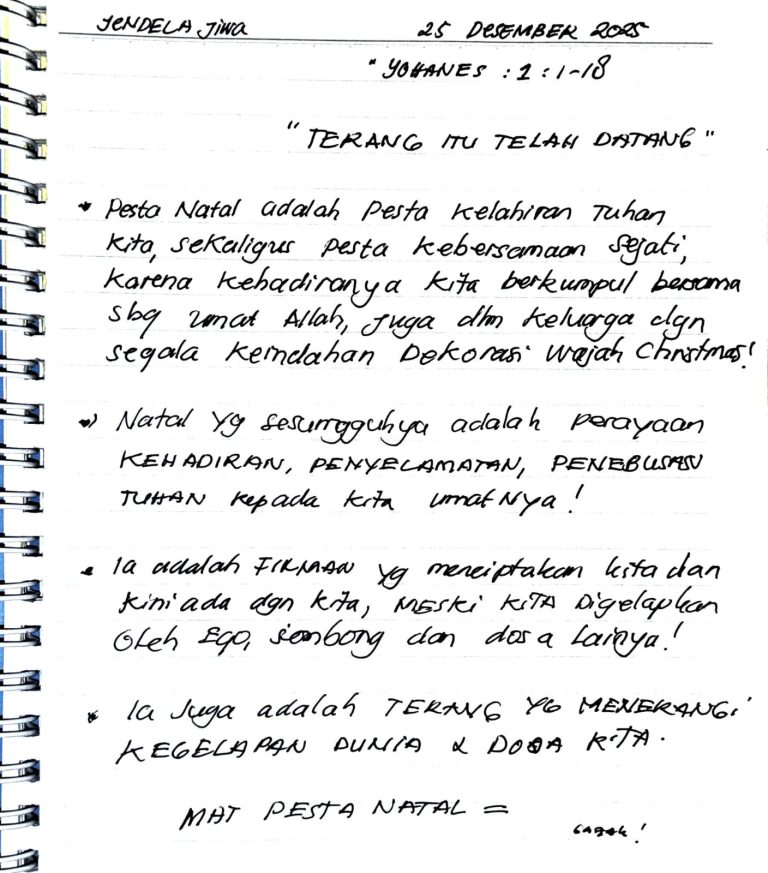 JENDELA JIWA 25 DESEMBER 2025
"YOHANES : 1 : 1-18
"TERANG ITU TELAH DATANG"
* Pesta Natal adalah Pesta Kelahiran Tuhan
kita, sekaligus pesta kebersamaan Sejati,
karena kehadiranya kita berkumpul bersama
sbg umat Allah, juga dlm keluarga dgn
segala keindahan Dekorasi Wajah Christmas!
Natal Yg sesungguhya adalah perayaan
KEHADIRAN, PENYELAMATAN, PENEBUSAN
TUHAN kepada kita umatNya!
Ia adalah FIRMAN yg menciptakan kita dan
kini ada dgn kita, MESKI KITA Digelapkan
Oleh Ego, sombong dan dosa Lainya!
* Ia Juga adalah TERANG YG MENERANGI
KEGELAPAN DUNIA & DOSA KITA.
MAT PESTA NATAL =